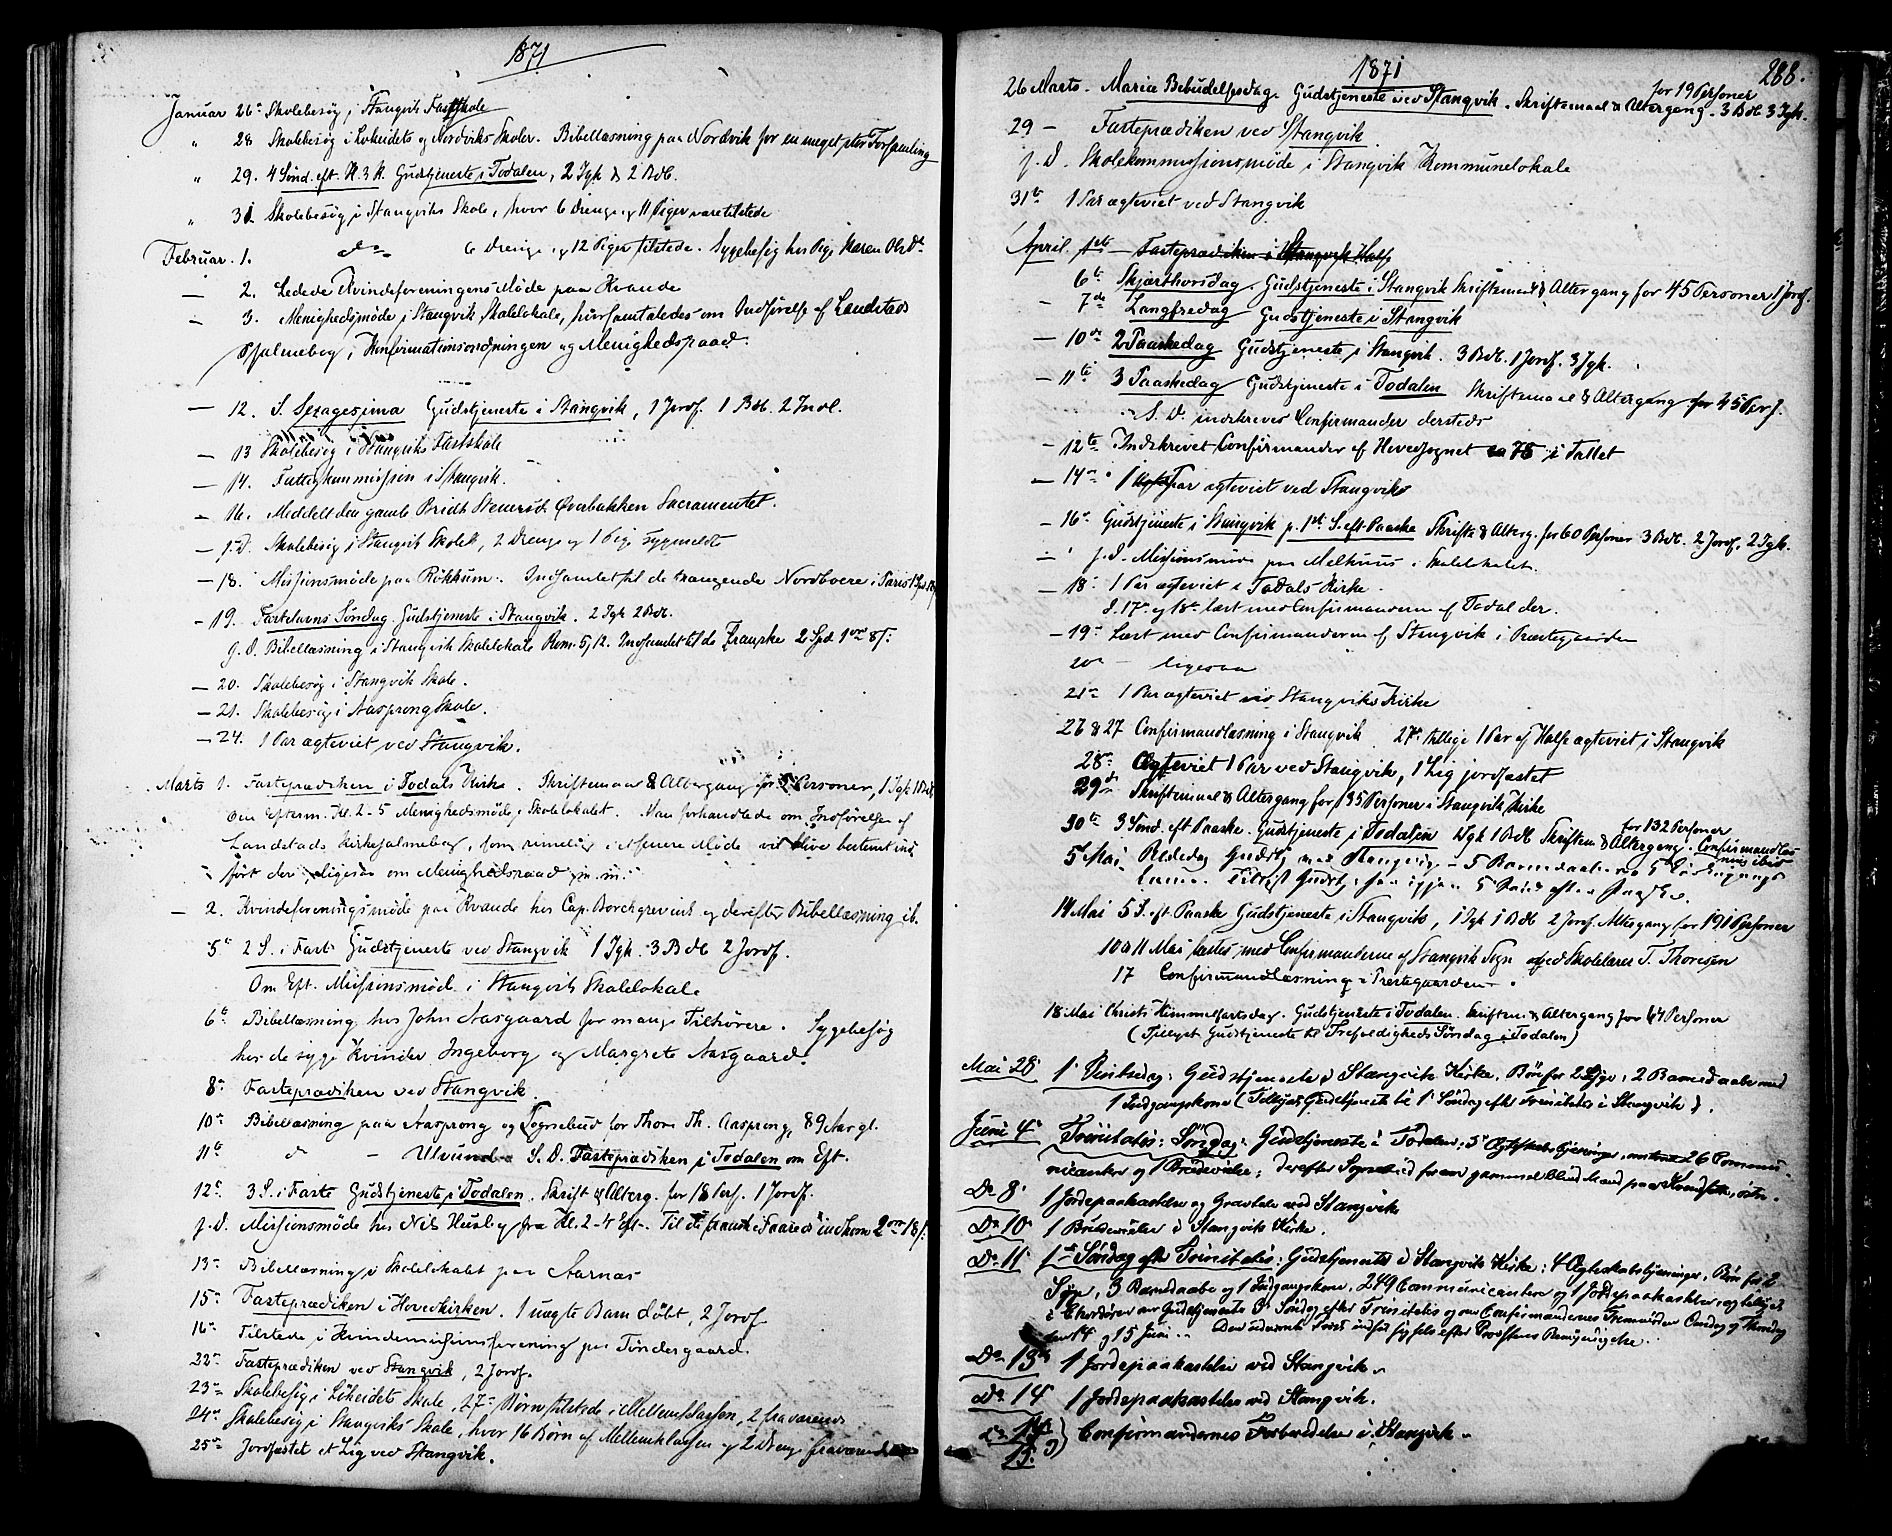 1871
Januar 26de Skolebesøg i Stangvik Fastskole
" 28 Skolebesøg i Løkeidets og Nordviks Skoler. Bibellæsning paa Nordvik for en meget stor Forsamling
" 29. 4 Sønd. eft. H. 3 K. Gudstjeneste i Todalen, 2 Igk & 2 B.db.
" 31 Skolebesøg i Stangviks Skole, hvor 6 Drenge og 11 Piger vare tilstede
Februar. 1. do 6 Drenge og 12 Piger tilstede. Sygebesøg hos Pige Maren Olsdt
— 2. Ledede Kvindeforeningens Møde paa Kvande
— 3. Menighedsmøde i Stangvik Skolelokale, hvor samtaledes om Indførelse af Landstads
Psalmebog, Konfirmationsordningen og Menighedsraad.
— 12. S. Sexagesima Gudstjeneste i Stangvik, 1 Jordf. 1 B.db. 2 Indl.
— 13 Skolebesøg i Stangviks Fastskole
— 14. Fattigkommission i Stangvik.
— 16. Meddelt den gamle Overbakken Sacramentet.
— s. D. Skolebesøg i Stangvik Skolek, 2 Drenge og 1 Pige sygmeldt
— 18. Missionsmøde paa Røkkum. Indsamlet til de trængende Nordboere i Paris
— 19. Fastelavns Søndag. Gudstjeneste i Stangvik. 2 Igk 2 B.db.
s. D. Bibellæsning i Stangvik Skolelokale Rom. 5,12. Indsamlet til de Franske 2 Spd 1 ort 8 s.
— 20. Skolebesøg i Stangvik Skole.
— 21. Skolebesøg i Aasprong Skole.
— 24. 1 Par ægteviet ved Stangvik.
Marts 1. Fasteprædiken i Todals Kirke. Skriftemaal & Altergang for Personer, 1 Igk 1 B.db.
om Efterm. Kl. 2-5 Menighedsmøde i Skolelokalet. Man forhandlede om Indførelse af
Landstads Kirkepsalmebog, som rimelig i et senere Møde vil blive bestemt ind-
ført der, ligesaa om Menighedsraad m. m.
— 2. Kvindeforeningsmøde paa Kvande hos Cap. Borchgrevink og derefter Bibellæsning ib.
5te 2 S. i Faste Gudstjeneste ved Stangvik 1 Igk. 3 B.db 2 Jordf.
Om Eft. Missionsmøde i Stangvik Skolelokale
6te Bibellæsning hos John Aasgaard for mange Tilhørere. Sygebesøg
hos de syge Kvinder Ingeborg og Margrete Aasgaard.
8de Fasteprædiken ved Stangvik
10de Bibellæsning paa Aasprong og Sognebud for Thore Th. Aasprong, 89 Aar gl.
11te do - Ulvund S. D. Fasteprædiken i Todalen om Eft.
12te 3 S. i Faste Gudstjeneste i Todalen. Skrift & Alterg. for 18 Pers. 1 Jordf.
s. D. Missionsmøde hos Nils Husby fra Kl. 2-4 Eft.
13de Bibellæsning i Skolelokalet paa Aarnæs
15de Fasteprædiken i Hovedkirken. 1 uægte Barn døbt, 2 Jordf
16de Tilstede i Kvindemissionsforening paa Tøndergaard.
22de Fasteprædiken ved Stangvik, 2 Jordf.
23de Skolebesøg i Løkeidets Skole, 27 Børn tilstede i Mellemklassen, 2 fraværende
24de Skolebesøg i Stangviks Skole, hvor 16 Børn af Mellemklassen og 2 Drenge fraværende
25de Jordfæstet et Lig ved Stangvik.
1871
288.
26 Marts. Mariæ Bebudelsesdag. Gudstjeneste ved Stangvik. Skriftemaal & Altergang for 19 Personer. 3 B.db. 3 Igk.
29 — Fasteprædiken ved Stangvik.
s. D. Skolekommissionsmøde i Stangvik Kommunelokale
31te 1 Par ægteviet ved Stangvik
April. 1ste — Fasteprædiken i Stangvik
6te Skjærthorsdag. Gudstjeneste i Stangvik Skriftemaal & Altergang for 45 Personer 1 Jordf.
— 7de Langfredag Gudstjeneste i Stangvik
— 10de 2 Paaskedag Gudstjeneste i Stangvik. 3 B.db. 1 Jordf. 3 Igk.
— 11te 3 Paaskedag Gudstjeneste i Todalen Skriftemaal & Altergang for 45 Pers.
S. D. indskreves Confirmander dersteds
— 12te Indskrevet Confirmander af Hovedsognet 75 i Tallet
— 14de 1 Par ægteviet ved Stangvik
— 16de Gudstjeneste i Stangvik p. 1st S. eft. Paaske Skrifte & Alterg. for 60 Personer 3 B.db. 2 Jordf. 2 Igk.
— s. D. Missionsmøde paa Melhuus i Skolelokalet.
— 18de 1 Par ægteviet i Todals Kirke.
d. 17de og 18de læst med Confirmanderne af Todal der.
— 19de Læst med Confirmanderne af Stangvik i Præstegaarden
20de — ligesaa
21de 1 Par ægteviet ved Stangviks Kirke
26 & 27 Confirmandlæsning i Stangvik 27de tillige 1 Par af Halse ægteviet i Stangvik
28de Ægteviet 1 Par ved Stangvik, 1 Lig jordfæstet
29de Skriftemaal & Altergang for 135 Personer i Stangvik Kirke
30te 3 Sønd. eft Paaske. Gudstjeneste i Todalen 1 Igk 1 B.db Skriftem. & Altergang for 132 Personer. Confirmandlæsning ibid
5 Mai Bededag Gudstj. ved Stangvig — 5 Barnedaab
14 Mai 5 S. eft. Paaske Gudstjeneste i Stangvik, 1 Igk 1 B.db 2 Jordf. Altergang for 191 Personer
10 & 11 Mai læstes med Confirmanderne af Stangvik Sogn af Skolelærer T. Thoresen
17 Confirmandlæsning i Præstegaarden.
18 Mai Christi Himmelfartsdag. Gudstjeneste i Todalen. Skriftem. & Altergang for 64 Personer
(Tillyst Gudstjeneste til Trefoldigheds Søndag i Todalen)
Mai 28 1 Pintsedag: Gudstjeneste i Stangvik Kirke. Bøn for 2 Syge, 2 Barnedaabe med
1 Indgangskone (Tillyst Gudstjeneste til 1 Søndag efter Trinitatis i Stangvik).
Juni 4de Trinitatis: Søndag: Gudstjeneste i Todalen: 26 Commu-
nicanter og 1 Brudevielse; derefter Sognebud for en gammel blind Mand paa
D. 8 1 Jordpaakastelse og Gravtale ved Stangvik
D. 10. 1 Brudevielse i Stangvik Kirke.
D. 11 1ste Søndag efter Trinitatis: Gudstjeneste i Stangvik Kirke: 4 Ægteskabslysninger, Bøn for 2
Syge, 3 Barnedaabe og 1 Indgangskone, 249 Communicantere og 1 Jordpaakastelse, og tillyst
Gudstjeneste 3 Søndag efter Trinitatis og Confirmandernes Fremmøden Onsdag og Thorsdag
14 og 15 Juni.
D. 13de 1 Jordpaakastelse ved Stangvik.
D. 14 1 Jordpaakastelse ved Stangvik.
D. 14 og 15. Confirmandernes Forberedelse i Stangvik.